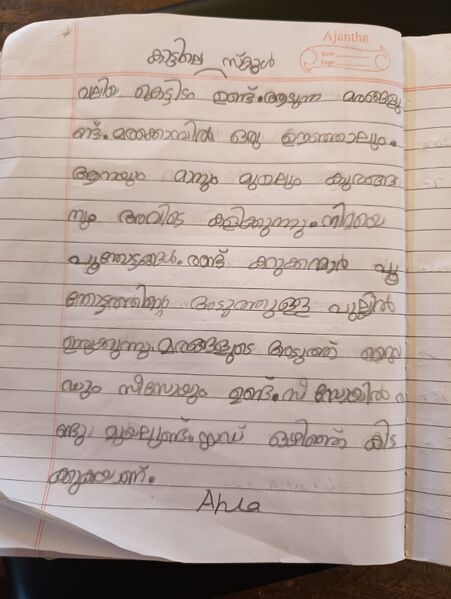 Ajantha
Date
Page
കാട്ടിലെ സ്കൂൾ
വലിയ കെട്ടിടം ഉണ്ട്. ആടുന്ന മരങ്ങളു
ണ്ട്. മരക്കൊമ്പിൽ ഒരു ഊഞ്ഞാലും.
ആനയും മാനും മുയലും കുരങ്ങ
നും അവിടെ കളിക്കുന്നു. നിറയെ
പൂന്തോട്ടങ്ങൾ. രണ്ട് കുറുക്കന്മാർ പൂ
ന്തോട്ടത്തിന്റെ അടുത്തുള്ള പുല്ലിൽ
ഇരുക്കുന്നു. മരങ്ങളുടെ അടുത്ത് സ്ലൈ
ഡും സീസോയും ഉണ്ട്. സീ സോയിൽ
മുയലുണ്ട്. സ്ലഡ് ഒഴിഞ്ഞ് കിട
ക്കുകയാണ്.
Ahla